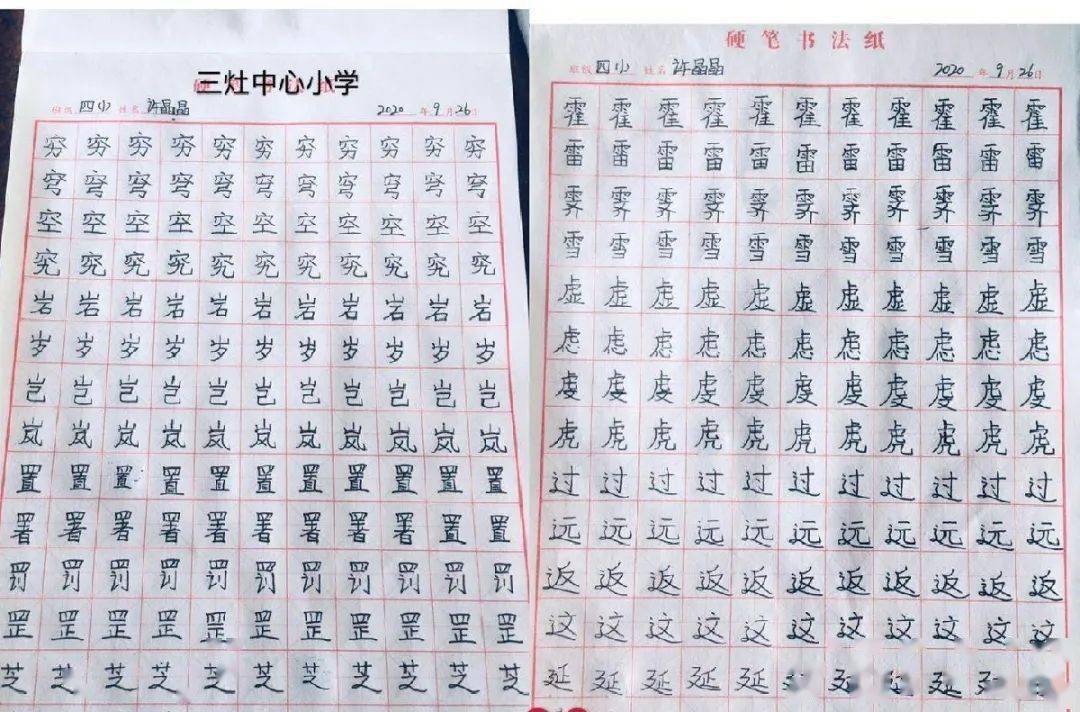 三灶中心小学
班级 四小 姓名 许晶晶 2020年9月26日
穷穷穷穷穷穷穷穷穷穷穷
穹穹穹穹穹穹穹穹穹穹穹
空空空空空空空空空空空
究究究究究究究究究究究
岩岩岩岩岩岩岩岩岩岩岩
岁岁岁岁岁岁岁岁岁岁岁
岂岂岂岂岂岂岂岂岂岂岂
岚岚岚岚岚岚岚岚岚岚岚
置置置置置置置置置置置
署署署署署署署署署置置
罚罚罚罚罚罚罚罚罚罚罚
罡罡罡罡罡罡罡罡罡罡罡
芝芝芝芝芝芝芝芝芝芝芝
硬笔书法纸
班级 四小 姓名 许晶晶 2020年9月26日
霍霍霍霍霍霍霍霍霍霍霍
雷雷雷雷雷雷雷雷雷雷雷
霁霁霁霁霁霁霁霁霁霁霁
雪雪雪雪雪雪雪雪雪雪雪
虚虚虚虚虚虚虚虚虚虚虚
虑虑虑虑虑虑虑虑虑虑虑
虔虔虔虔虔虔虔虔虔虔虔
虎虎虎虎虎虎虎虎虎虎虎
过过过过过过过过过过过
远远远远远远远远远远远
返返返返返返返返返返返
这这这这这这这这这这这
延延延延延延延延延